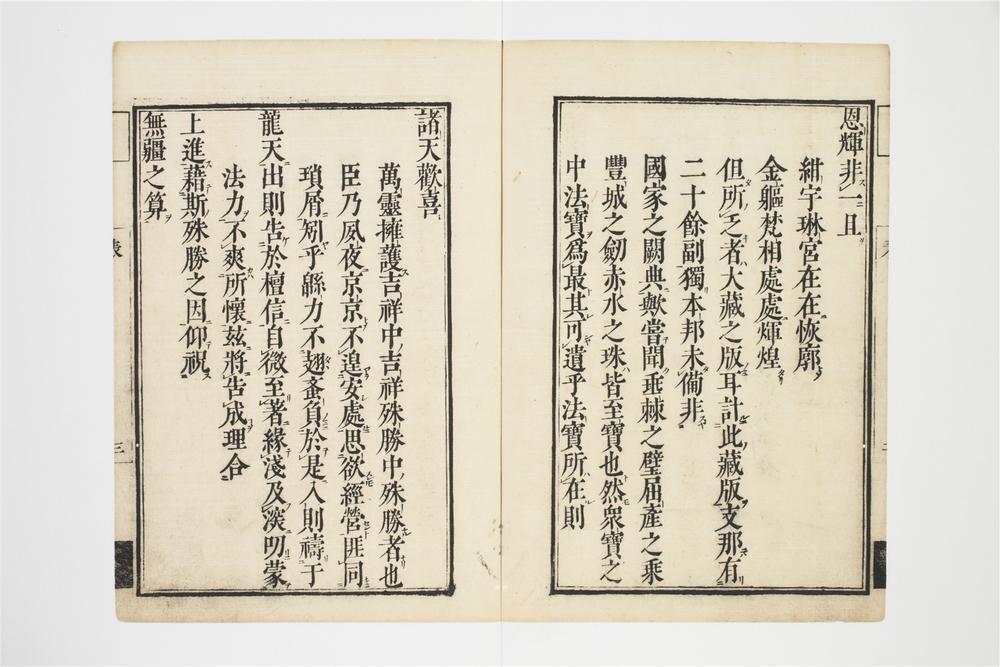 恩輝非一且
紺宇琳宮在在恢廓
金軀梵相處處煇煌
但所乏者大藏之版耳計此藏版支那有
二十餘副獨本邦未備非
國家之闕典歟嘗聞垂棘之璧屈產之乘
豐城之劒赤水之珠皆至寶也然衆寶之
中法寶爲最其可遺乎法寶所在則
諸天歡喜
萬靈擁護吉祥中吉祥殊勝中殊勝者也
臣乃夙夜京京不遑安處思欲經營匪同
瑣屑矧乎緜力不翅蚉負於是入則禱于
龍天出則告於檀信自微至著緣淺及深叨蒙
法力不爽所懷玆將告成理合
上進藉斯殊勝之因仰祝
無疆之算
三